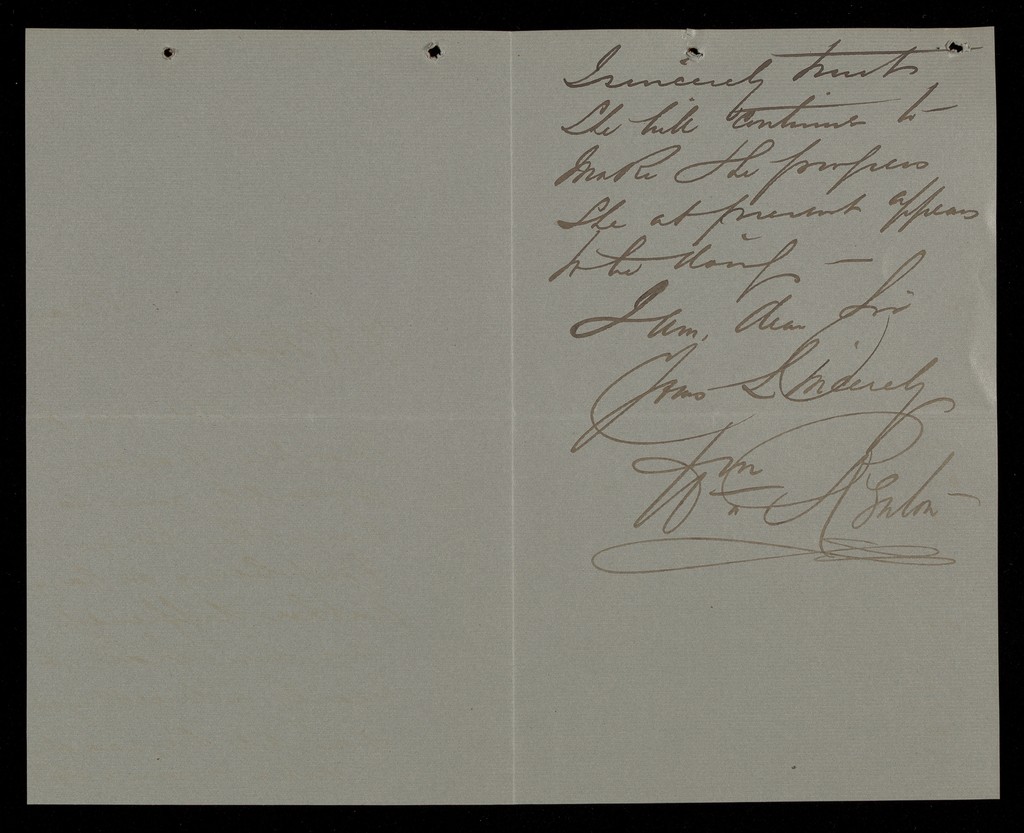 I sincerely trust
She will continue to
Make the progress
She at present appears
to be doing —
I am, dear Sir
Yours Sincerely
Wm